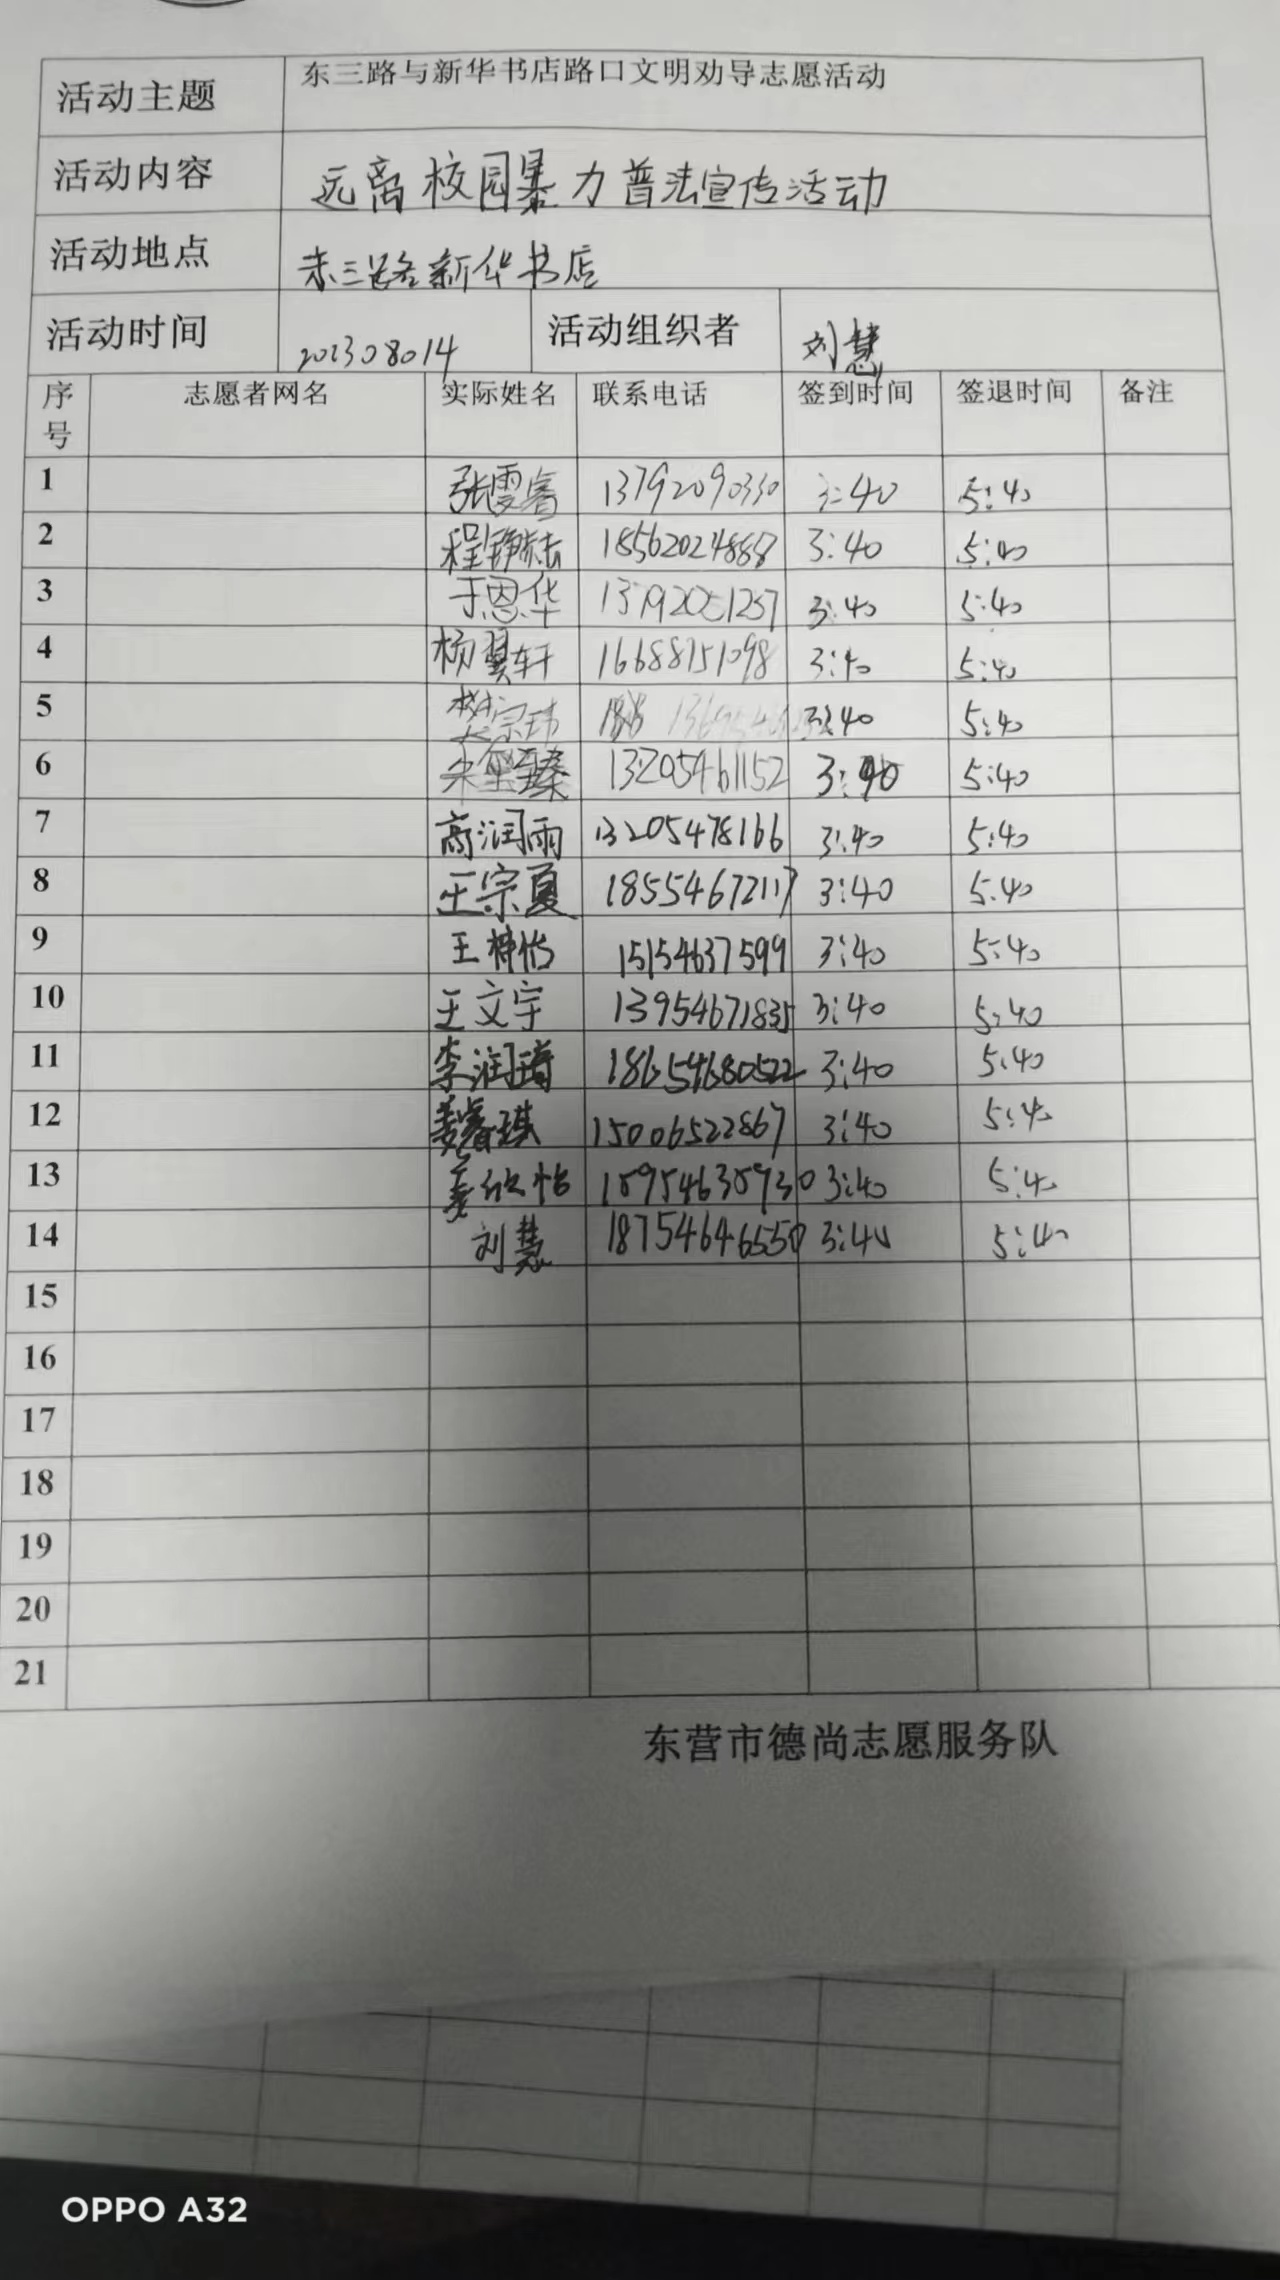 活动主题 东三路与新华书店路口文明劝导志愿活动
活动内容 远离校园暴力普法宣传活动
活动地点 东三路新华书店
活动时间 202308014 活动组织者 刘慧
序号 志愿者网名 实际姓名 联系电话 签到时间 签退时间 备注
1 张雯睿 13792090330 3:40 5:40
2 18562024888 3:40 5:40
3 于恩华 3:40 5:40
4 杨翼轩 16688751098 3:40 5:40
5 樊宗玮 3:40 5:40
6 13205461152 3:40 5:40
7 高润雨 13205478166 3:40 5:40
8 王宗夏 18554672117 3:40 5:40
9 王梓怡 15154637599 3:40 5:40
10 王文宇 13954671835 3:40 5:40
11 18654680522 3:40 5:40
12 15006522867 3:40 5:40
13 姜欣怡 3:40 5:40
14 刘慧 18754646550 3:40 5:40
15
16
17
18
19
20
21
东营市德尚志愿服务队
OPPO A32